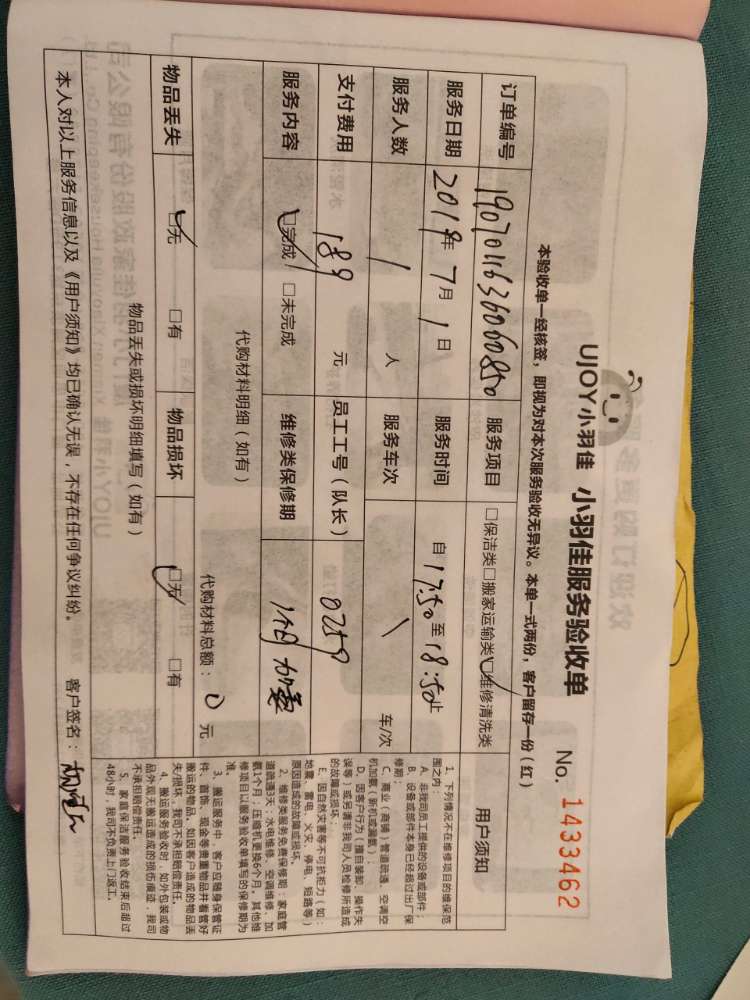 UJOY小羽佳 小羽佳服务验收单
No. 1433462
本验收单一经核签，即视为对本次服务验收无异议。本单一式两份，客户留存一份（红）
订单编号 服务项目 □保洁类□搬家运输类☑维修清洗类 用户须知
服务日期 2019年7月1日 服务时间 自17:50至18:50止
服务人数 1人 服务车次 \ 车/次
支付费用 189元 员工工号（队长） 0259
服务内容 ☑完成 □未完成 维修类保修期 1个月
代购材料明细（如有） 代购材料总额：0元
物品丢失 ☑无 □有 物品损坏 ☑无 □有
物品丢失或损坏明细填写（如有）
本人对以上服务信息以及《用户须知》均已确认无误，不存在任何争议纠纷。 客户签名：
1、下列情况不在维修项目的维保范
围之内：
A、非我司员工提供的设备或部件；
B、设备或部件本身已经超过出厂保
修期；
C、商业（商铺）管道疏通、空调空
机加氨（新机或漏氨）；
D、因客户行为（擅自装卸、操作失
误等）或另请非我司人员检修所造成
的故障或损坏；
E、因自然灾害等不可抗拒力（如：
地震、雷击、火灾、停电、短路等）
原因造成的故障或损坏。
2、维修类服务免费保修期：家庭管
道疏通3天；水电维修、空调维修、加
氨1个月；压缩机更换6个月，其他维
修项目以服务验收单填写的保修期为
准。
3、搬运服务中，客户应随身保管证
件、首饰、现金等贵重物品并看管好
搬运的物品，如因客户造成的物品丢
失/损坏，我司不承担赔偿责任。
4、搬运服务验收时，如外包装或物
品外观无搬运造成的损伤痕迹，我司
不承担赔偿责任。
5、家庭保洁服务验收结束后超过
48小时，我司不负责上门返工。